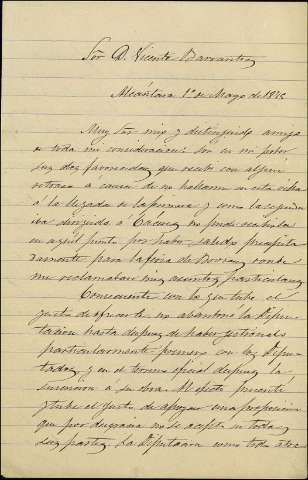 Sor. D. Vicente Barrantes
Alcántara 1º de Mayo de 187
Muy Sor mio y distinguido amigo
de toda mi consideracion: son en mi poder
sus dos favorecidas, que recibí con algun
retraso á causa de no hallarme en esta villa
á la llegada de la primera y como la segunda
iba dirigida á Cáceres no pude recibirla
en aquel punto por haber salido precipita
damente para la feria de donde
me reclamaban mis asuntos particulares
Consecuente con lo que tube el
gusto de ofrecerle no abandoné la Dipu-
tacion hasta despues de haber gestionado
particularmente primero con los Dipu-
tados, y en el terreno oficial despues, la
suscricion á su obra. Al efecto presenté
y tube el gusto de apoyar una proposicion
que por desgracia no se aceptó en todas
sus partes. La Diputacion como todo